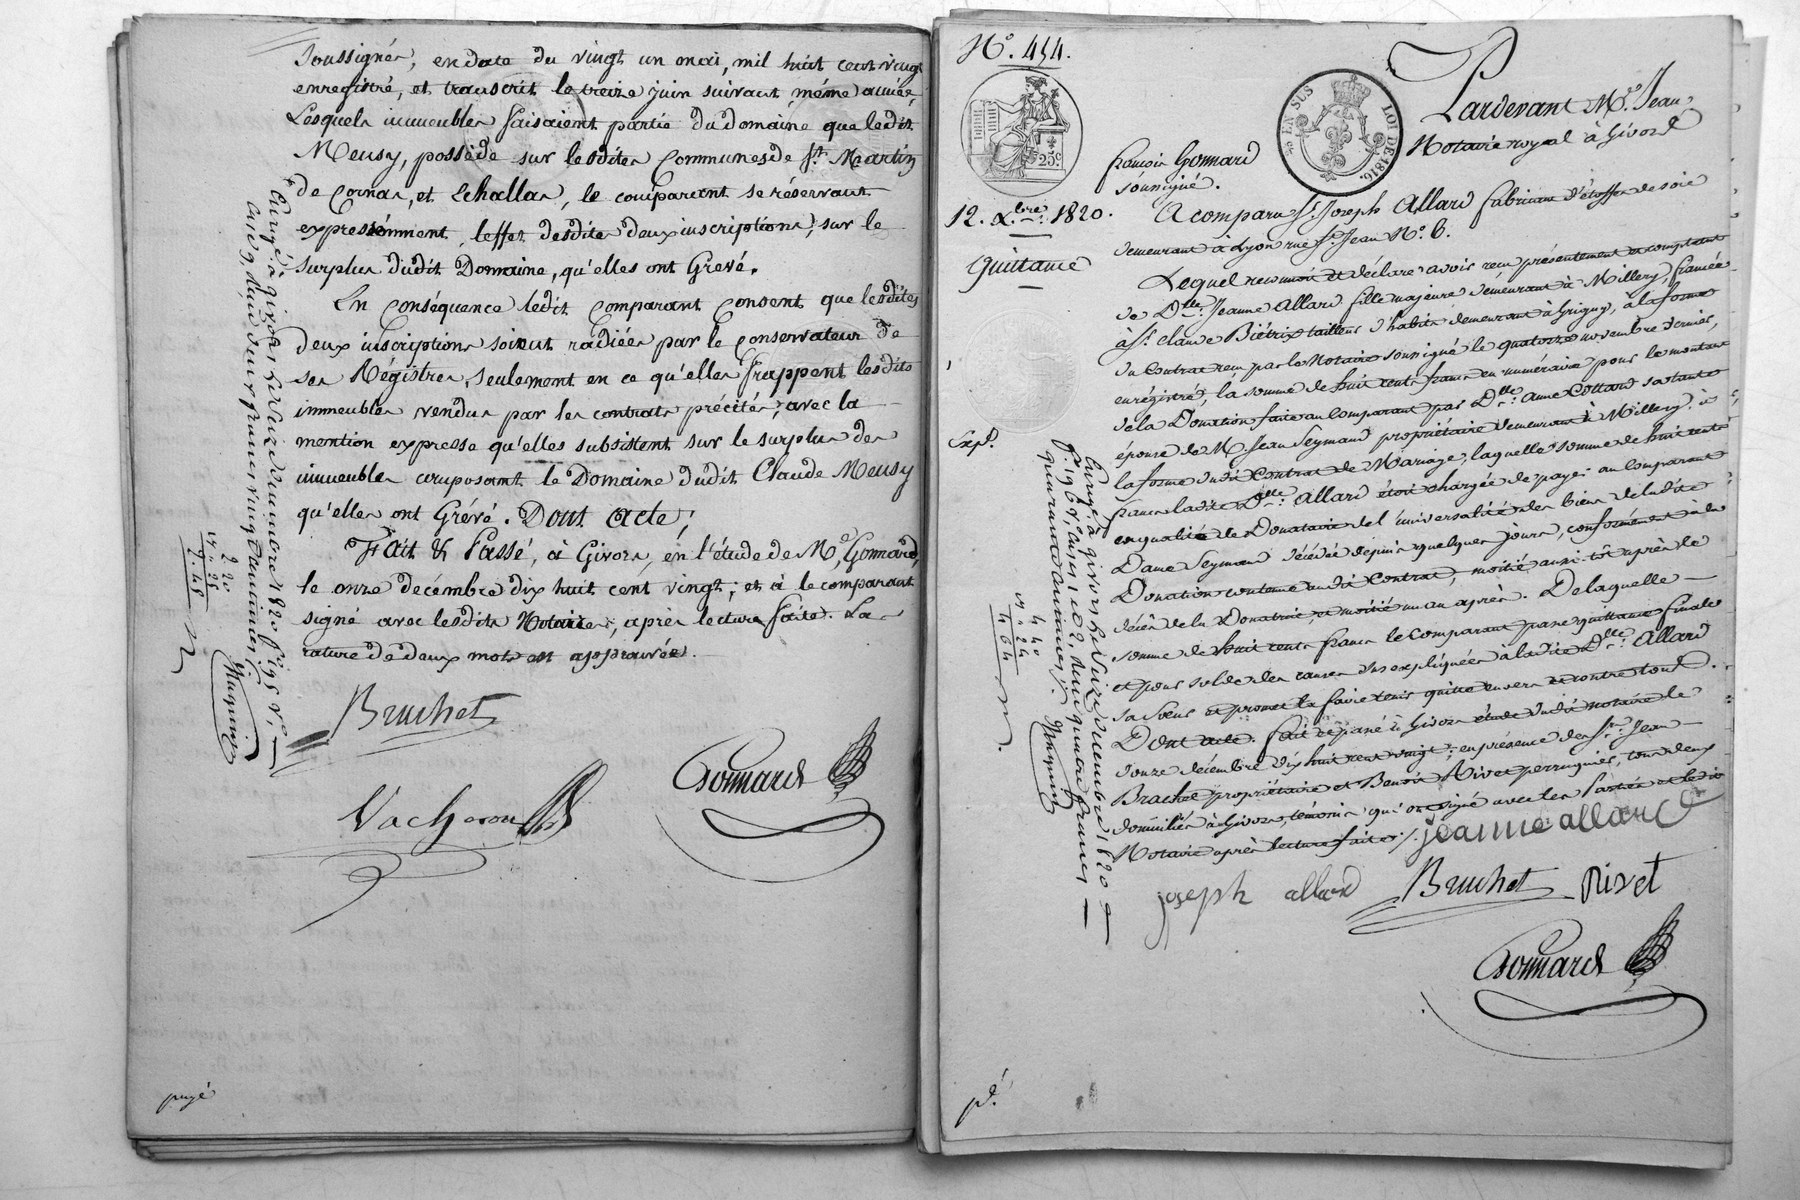 soussignés, en date du vingt un mai, mil huit cent vingt
enregistré, et transcrit le treize juin suivant, même année,
Lesquels immeubles faisaient partie du domaine que ledit
Meusy, possède sur lesdites Communes de St. Martin
de Cornas, et Echallas, le comparant se réservant
expressément, l'effet desdites deux inscriptions, sur le
surplus dudit Domaine, qu'elles ont Grevé.
En conséquence ledit comparant consent que lesdites
deux inscriptions soient radiées par le conservateur de
ses Régistres, seulement en ce qu'elles frappent lesdits
immeubles vendus par les contrats précités, avec la
mention expresse qu'elles subsistent sur le surplus des
immeubles composant le Domaine dudit Claude Meusy
qu'elles ont Grévé. Dont acte,
Fait & Passé, à Givors, en l'étude de Me. Gonnard,
le onze décembre dix huit cent vingt; et à le comparant
signé avec lesdits Notaires, après lecture faite. La
rature de deux mots est approuvée.
Bruchet
Vacheron
Gonnard
Enrgé à Givors le seize décembre 1820 fo. 195 Vo.
case 9, deux francs vingt centimes
2 20
" 25
2. 45
payé
No. 454.
25c
EN SUS
LOI DE 1816.
Pardevant Me. Jean
françois Gonnard
Notaire royal à Givors
soussigné.
12. Xbre. 1820.
A comparu Sr. Joseph Allard fabricant d'étoffes de soie
demeurant à Lyon rue St. Jean No. 6.
Quittance
Lequel reconnait et déclare avoir reçu présentement et comptant
de Dlle. Jeanne Allard fille majeure demeurant à Millery, fiancée
à Sr. Claude Biétrix tailleur d'habits demeurant à Grigny, à la forme
du Contrat reçu par le Notaire soussigné le quatorze novembre dernier,
enrégistré, la somme de huit cents francs en numéraire pour le montant
de la Donation faite au Comparant par Dlle. Anne Collard sa tante
Expd.
épouse de M. Jean Seymand propriétaire demeurant à Millery, à
la forme dudit Contrat de Mariage, laquelle somme de huit cents
francs ladite Dlle. Allard étoit chargée de payer au Comparant
en qualité de Donataire de l'universalité des biens de ladite
Dame Seymand décédée depuis quelques jours, conformément à la
Donation contenue audit Contrat, moitié aussi-tôt après le
décès de la Donatrice, et moitié un an après. De laquelle
somme de huit cents francs le Comparant passe quittance finale
et pour solde des causes sus expliquées à ladite Dlle. Allard
sa sœur et promet la faire tenir quitte envers et contre tous.
Dont acte. fait et passé à Givors étude dudit notaire le
douze décembre dix huit cent vingt; en présence de Srs. Jean
Bruchet propriétaire et Benoit Rivet perruquier, tous deux
domiciliés à Givors, témoins qui ont signé avec les parties et ledit
Notaire après lecture faite.
jeanne allard
joseph allard
Bruchet
Rivet
Gonnard
Enrgé. à Givors le seize décembre 1820
fo. 196 Vo. cases 1 et 2, deux quatre francs
quarante centimes
4 40
" 24
4 64
pd.